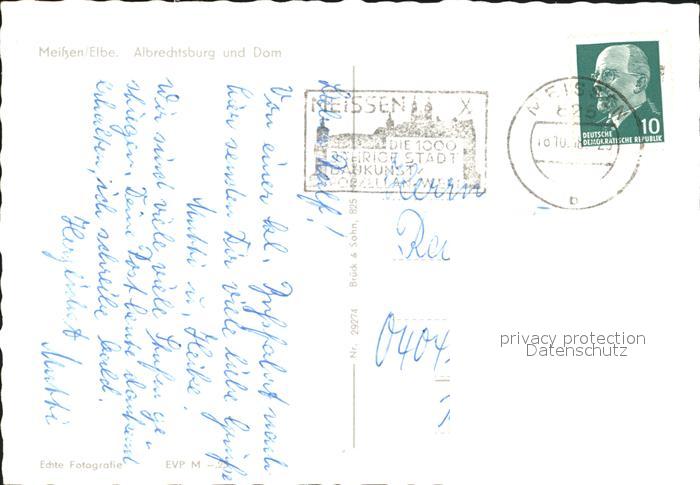 Meißen/Elbe. Albrechtsburg und Dom
Lieber Ralf!
Von einer kl. Busfahrt nach
hier senden Dir viele liebe Grüße
Mutti u. Heike.
Wir sind viele viele Stufen ge-
stiegen. Deine Post heute dankend
erhalten, ich schreibe bald.
Herzlichst Mutti
Echte Fotografie EVP M -.2
Nr. 29274 Brück & Sohn, 825
MEISSEN X
DIE 1000
JÄHRIGE STADT
BAUKUNST
MEISSEN
825
18.10.
b
DEUTSCHE
DEMOKRATISCHE REPUBLIK
10
Herrn
0404
privacy protection
Datenschutz